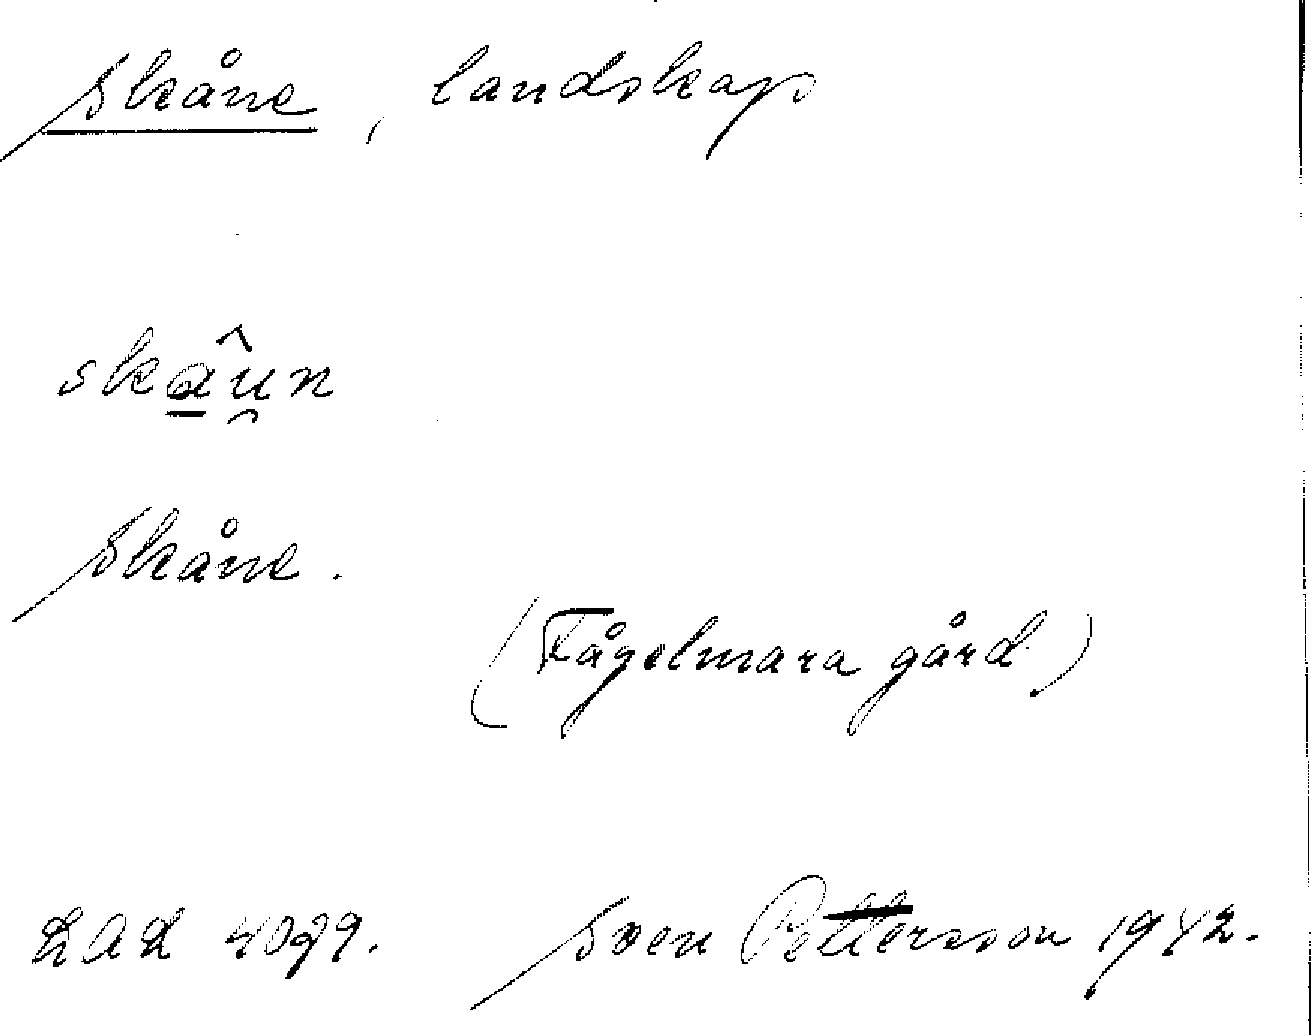 Skåne, landskap
skaû̯n
Skåne.
(Fågelmara gård)
LAL 4079. Sven Pettersson 1942.